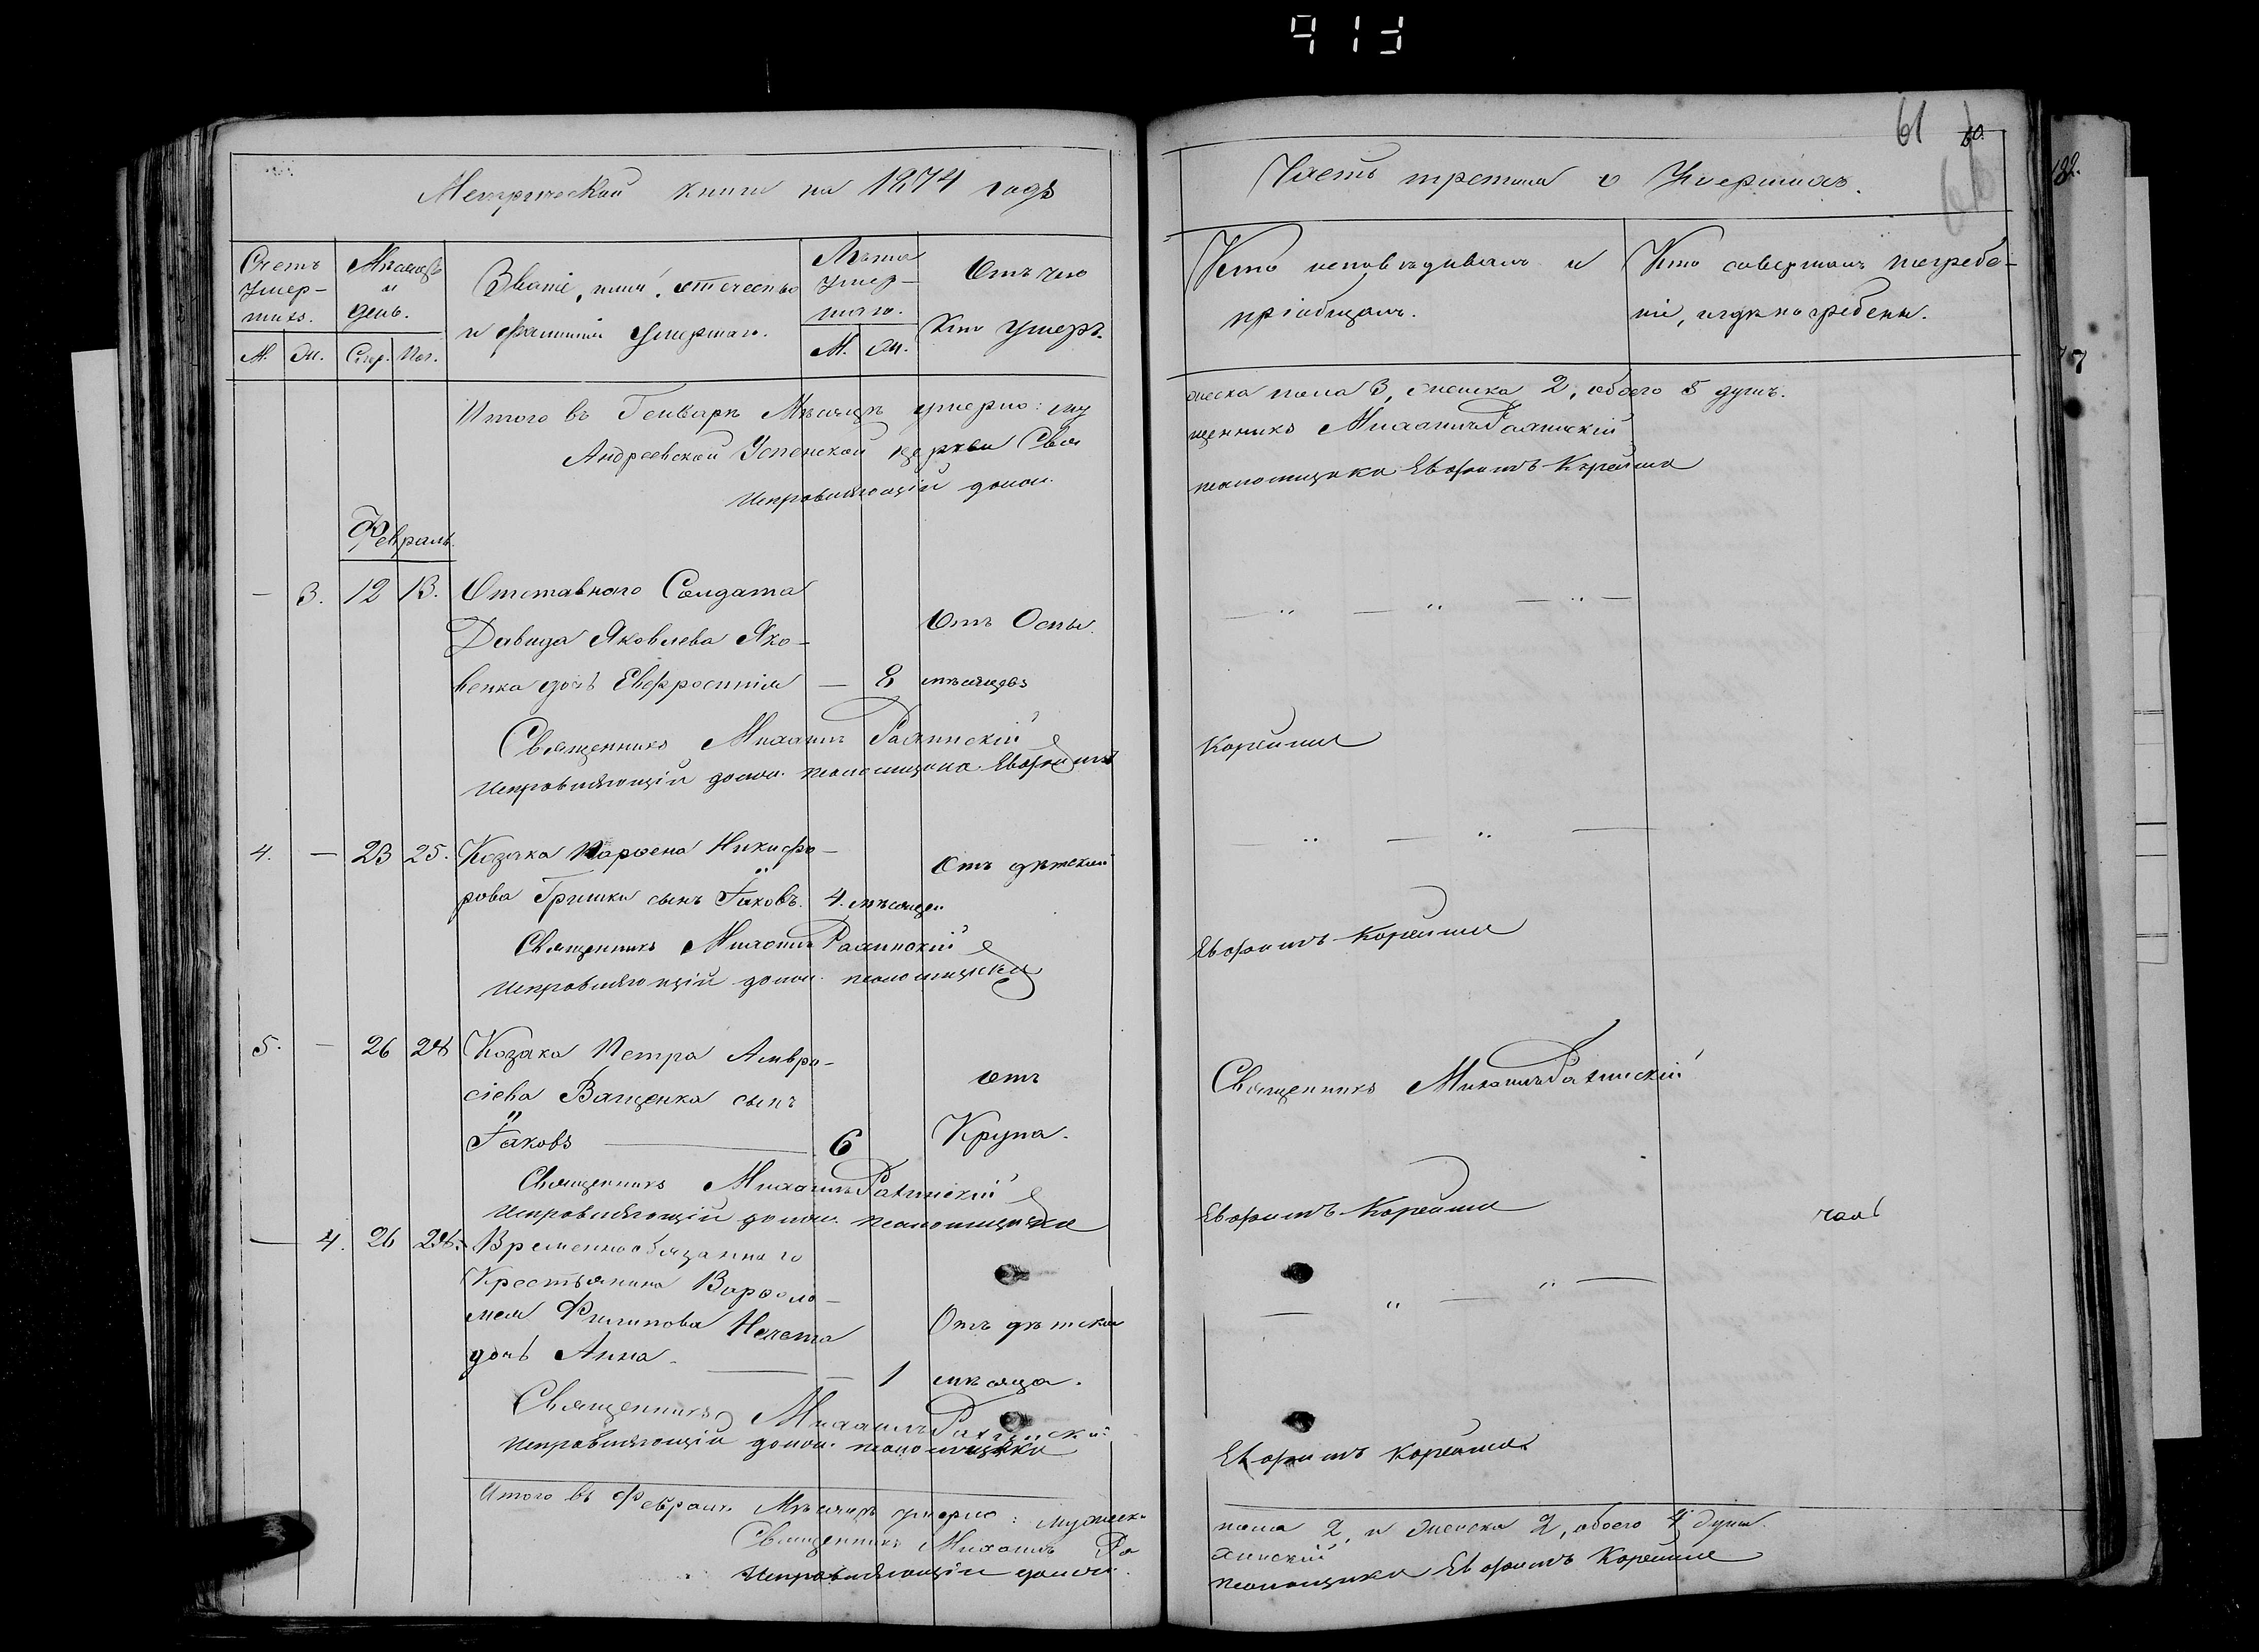 413
Метрической книги на 1874 годъ
Счетъ
умер-
шихъ.
М. Ж.
Мѣсяцъ
и
день.
Смер. Пог.
Званіе, имя, отчество
и фамилія умершаго.
Лѣта
умер-
шаго.
М. Ж.
Отъ чего
кто умеръ.
Итого въ Генварѣ Мѣсяцѣ умерло: му
Андреевской Успенской церкви Свя
Исправляющій долж.
Февраль.
— 3. 12 13. Отставного Солдата
Давида Яковлева Яко- Отъ Оспы.
венка дочь Евфросинія — 8 мѣсяцовъ
Священникъ Михаилъ Рахинскій
Исправляющій долж. псаломщика Евфимъ
4. — 23 25. Козака Парфена Никифо- Отъ дѣтской
рова Гришки сынъ Іаковъ. 4. мѣсяцеи
Священникъ Михаилъ Рахинскій
Исправляющій долж. псаломщика
5. — 26 28 Козака Петра Амвро- отъ
сіева Ващенка сынъ
Іаковъ — 6 Крупа.
Священникъ Михаилъ Рахинскій
Исправляющій долж. псаломщика
— 4. 26 28. Временнообязаннаго
Крестьянина Варфоло-
мея Филипова Нечета Отъ дѣтской
дочь Анна — — 1 мѣсяца.
Священникъ Михаилъ Рахинскій
Исправляющій долж. псаломщика
Итого въ Февралѣ Мѣсяцѣ умерло: мужеска
Священникъ Михаилъ Ра
Исправляющій должн.
61 60.
Часть третья о Умершихъ.
Кто исповѣдывалъ и
пріобщалъ.
Кто совершалъ погребе-
ніе, и гдѣ погребены.
жеска пола 3, женска 2, обоего 5 душъ.
щенникъ Михаилъ Рахинскій
псаломщика Евфимъ Корейша
— " — " — " —
Корейша
— " — " —
Евфимъ Корейша
Священникъ Михаилъ Рахинскій
Евфимъ Корейша
— " — " —
Евфимъ Корейша
пола 2, и женска 2, обоего 4 душъ.
хинскій
псаломщика Евфимъ Корейша